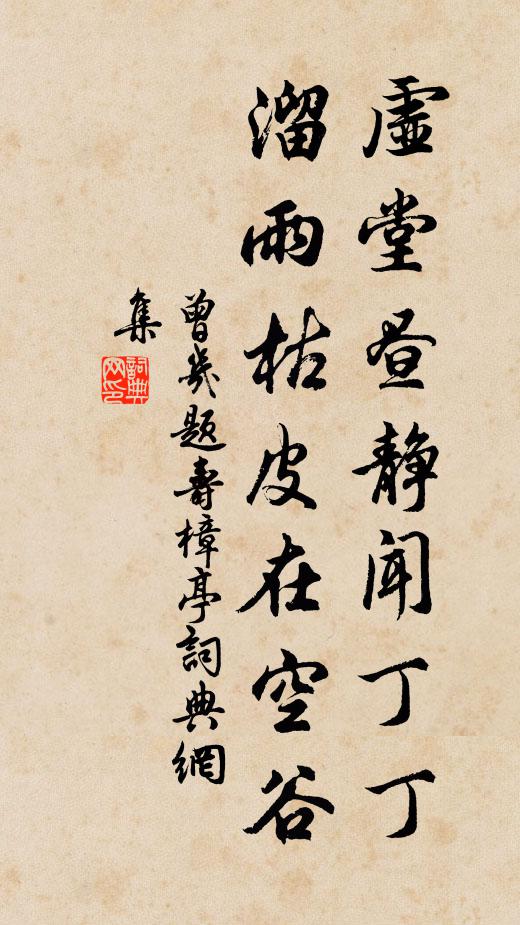 虛堂昼静聞丁丁
溜雨枯皮在空谷
曾幾題壽樟亭詞典網
集
詞典
网印